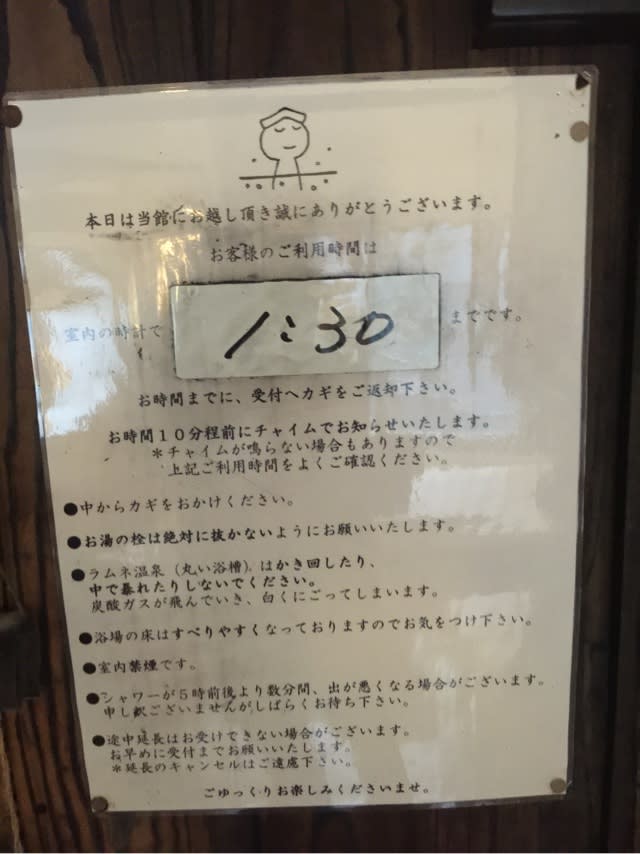 本日は当館にお越し頂き誠にありがとうございます。
お客様のご利用時間は
室内の時計で 1:30 までです。
お時間までに、受付へカギをご返却下さい。
お時間１０分程前にチャイムでお知らせいたします。
＊チャイムが鳴らない場合もありますので
上記ご利用時間をよくご確認ください。
●中からカギをおかけください。
●お湯の栓は絶対に抜かないようにお願いいたします。
●ラムネ温泉（丸い浴槽）はかき回したり、
中で暴れたりしないでください。
炭酸ガスが飛んでいき、白くにごってしまいます。
●浴場の床はすべりやすくなっておりますのでお気をつけ下さい。
●室内禁煙です。
●シャワーが５時前後より数分間、出が悪くなる場合がございます。
申し訳ございませんがしばらくお待ち下さい。
●途中延長はお受けできない場合がございます。
お早めに受付までお願いいたします。
＊延長のキャンセルはご遠慮下さい。
ごゆっくりお楽しみくださいませ。